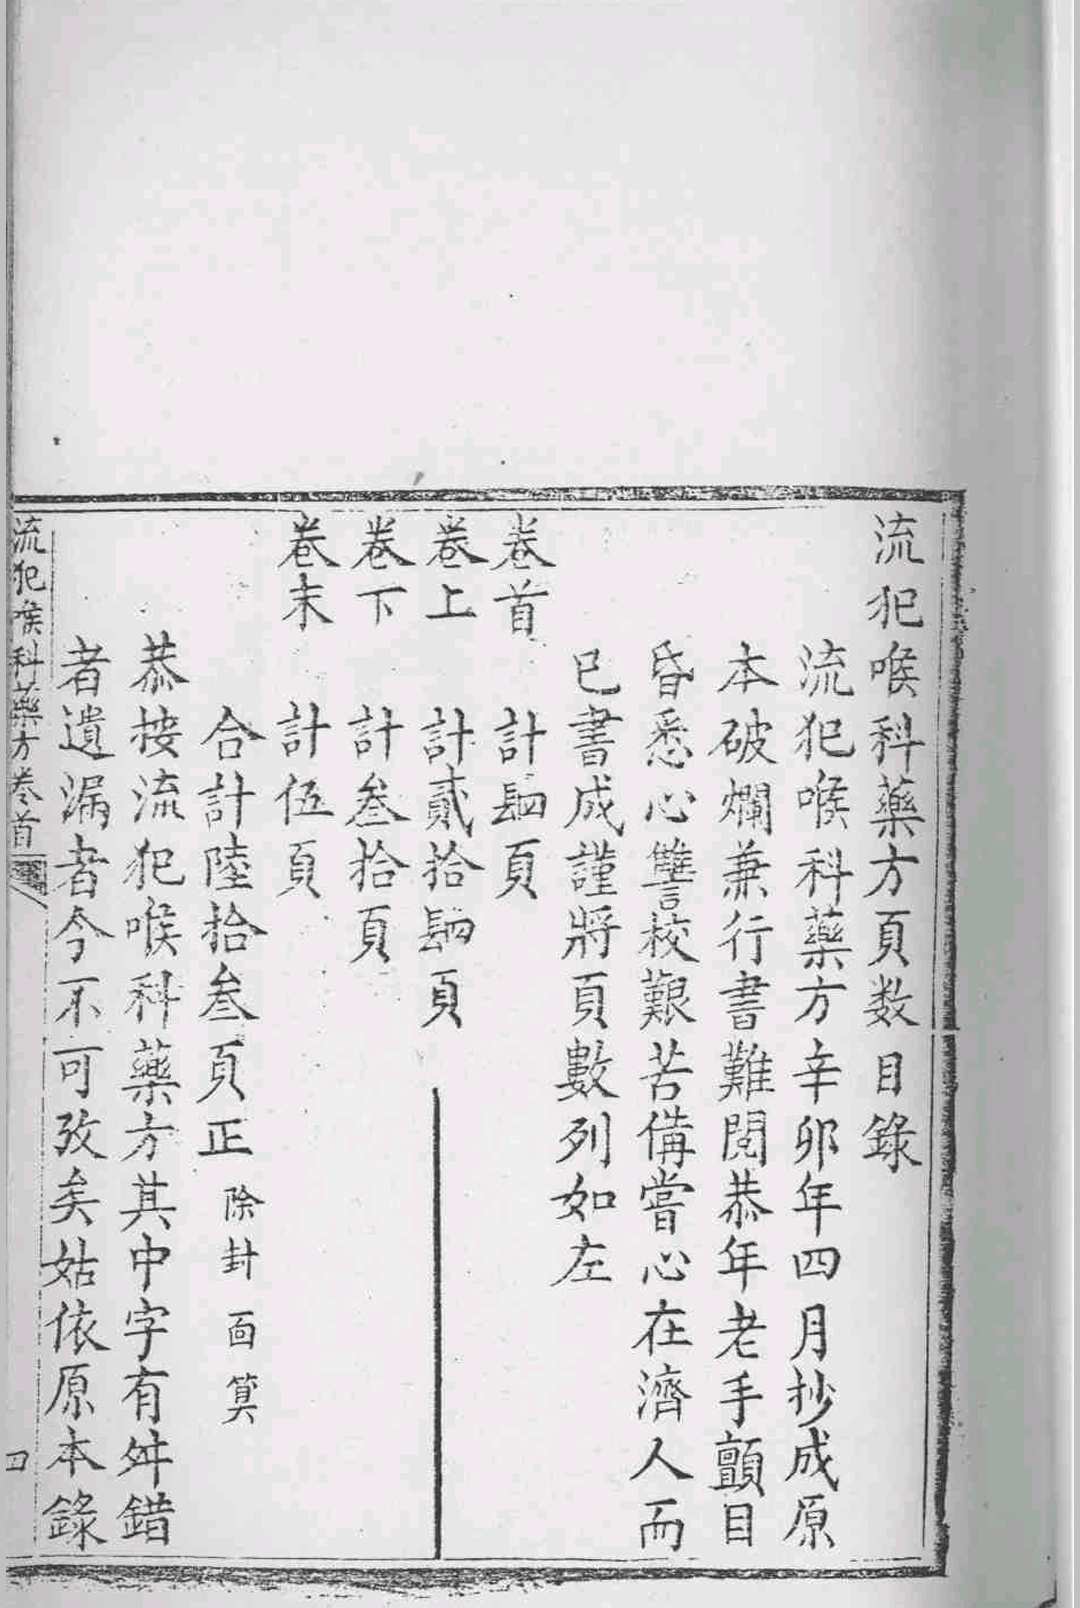 流犯喉科藥方頁数目錄
流犯喉科藥方辛卯年四月抄成原
本破爛兼行書難閱恭年老手顫目
昏悉心讐校艱苦備嘗心在濟人而
已書成謹將頁數列如左
卷首 計肆頁
卷上 計貳拾肆頁
卷下 計叁拾頁
卷末 計伍頁
合計陸拾叁頁正 除封面算
恭按流犯喉科藥方其中字有舛錯
者遺漏者今不可攷矣姑依原本錄
流犯喉科藥方卷首 四